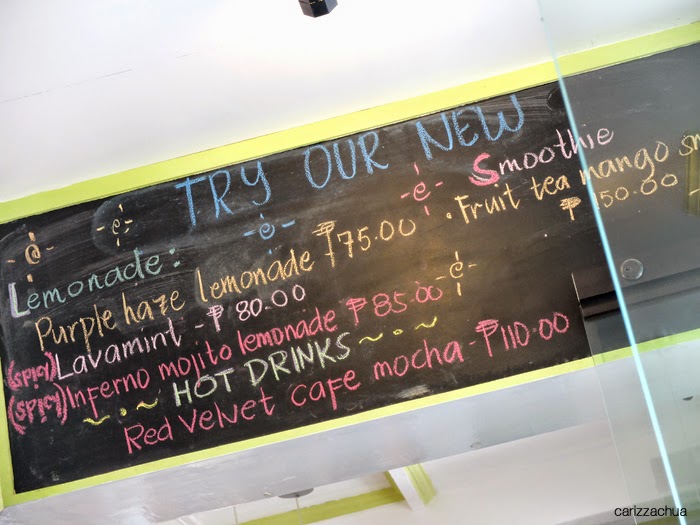 TRY OUR NEW
Lemonade:
Purple haze lemonade ₱75.00
(spicy) Lavamint - ₱ 80.00
(spicy) Inferno mojito lemonade ₱85.00
~ • ~ HOT DRINKS ~ • ~
Red VelVet cafe mocha - ₱110.00
Smoothie
• Fruit tea mango
₱ 150.00
carizzachua